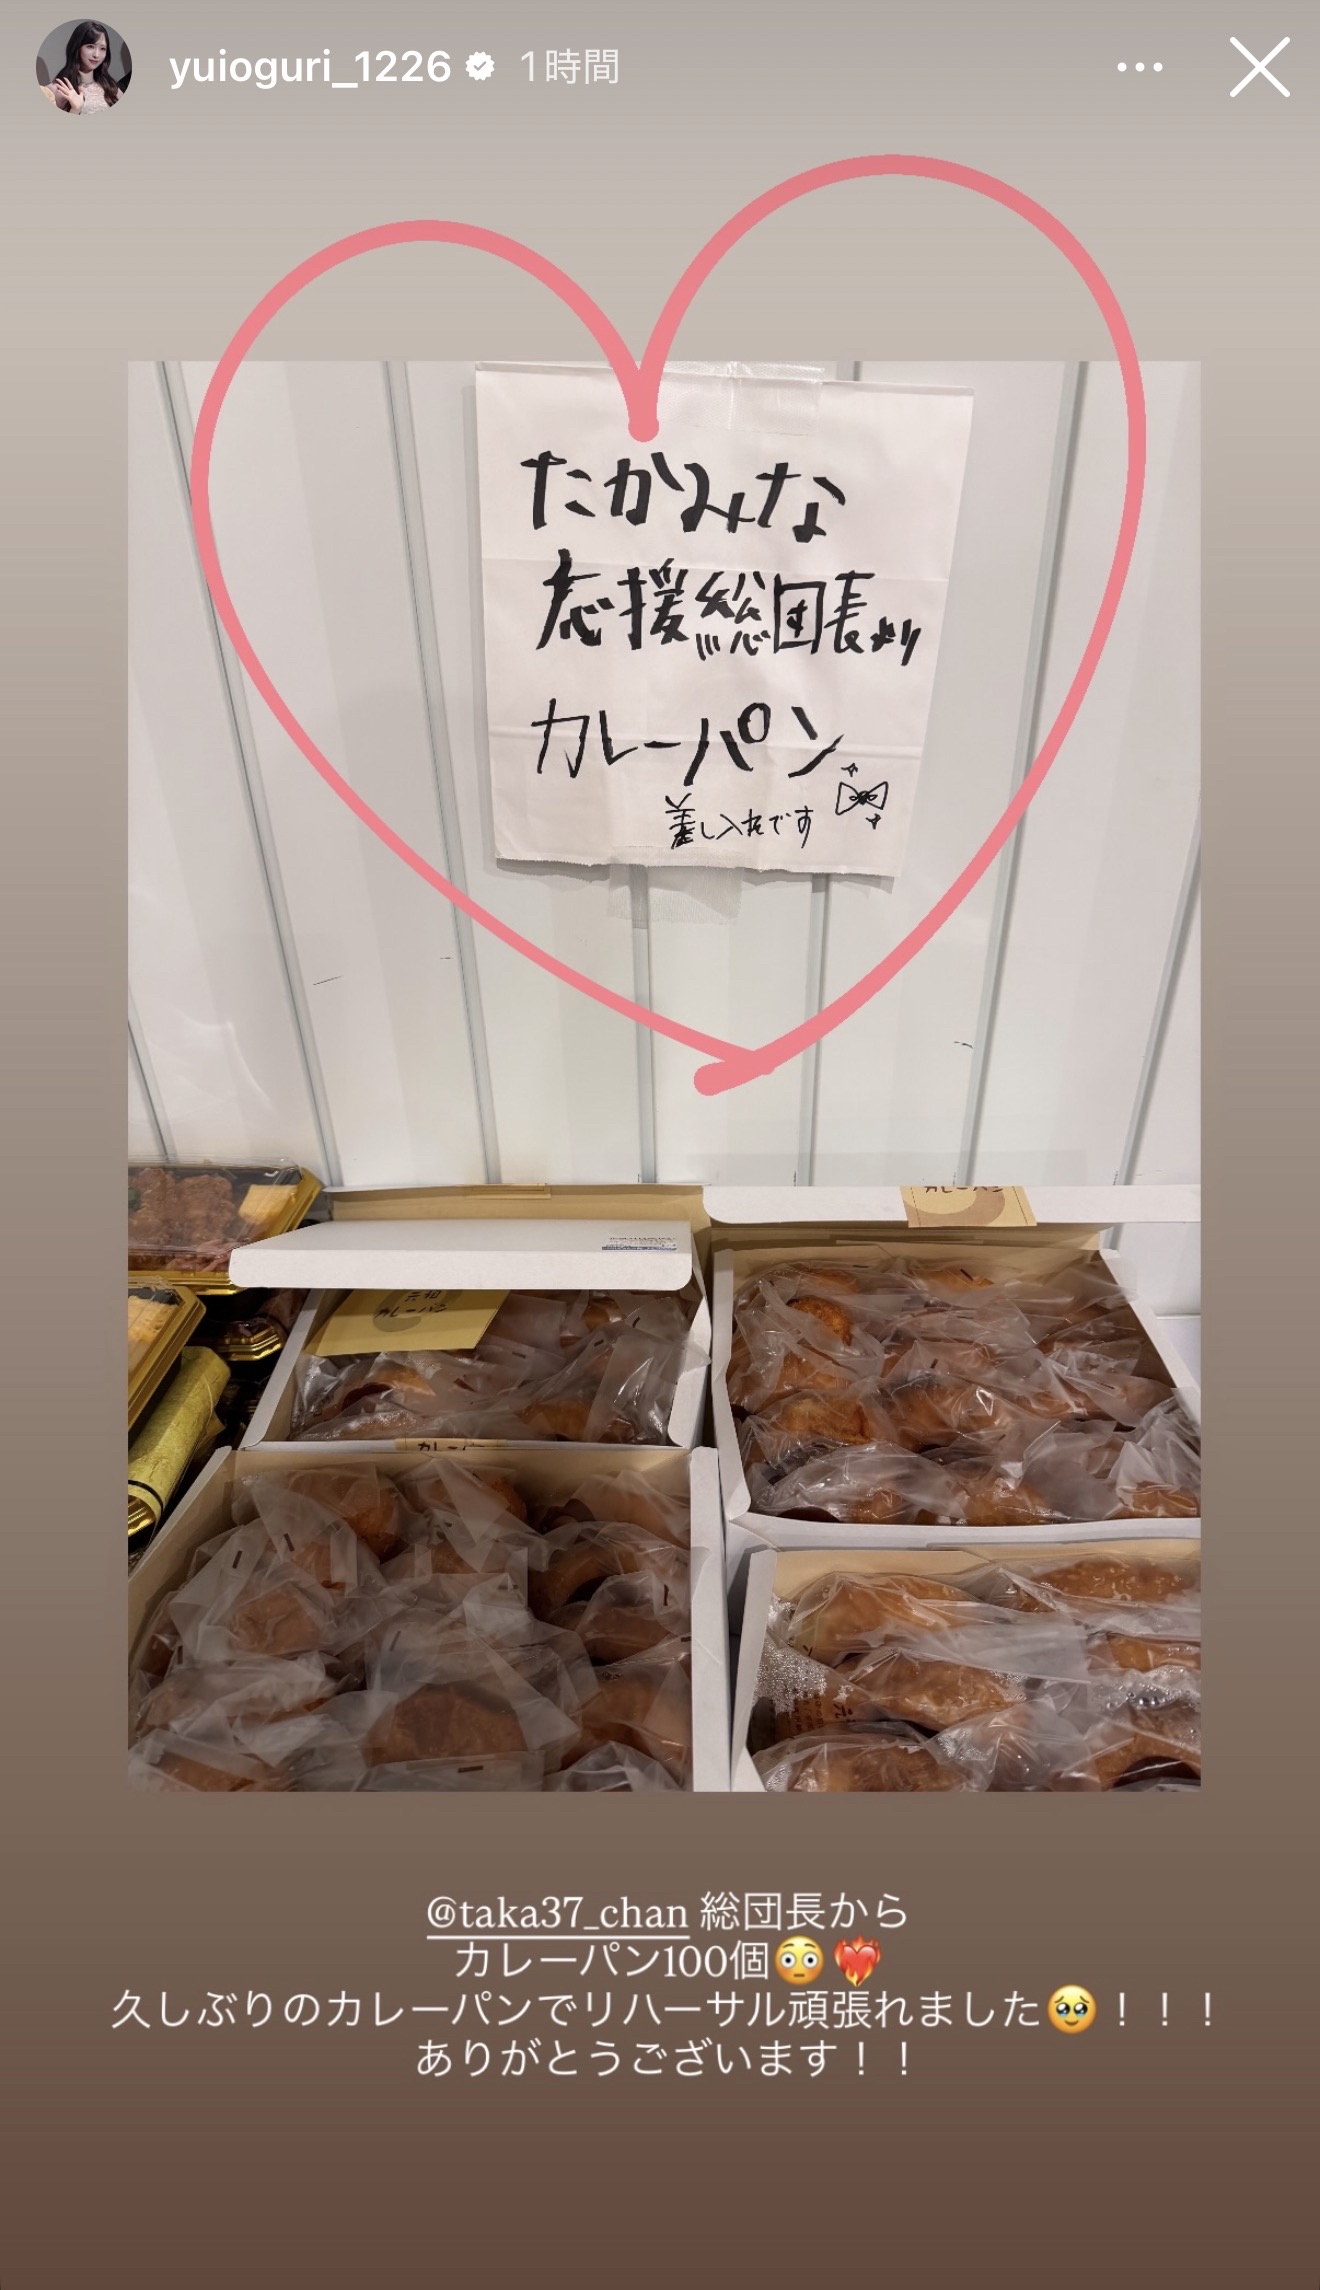 yuioguri_1226 1時間
たかみな
応援総団長より
カレーパン
差し入れです
カレーパン
カレーパン
カレー
@taka37_chan 総団長から
カレーパン100個😳❤️‍🔥
久しぶりのカレーパンでリハーサル頑張れました🥹！！！
ありがとうございます！！